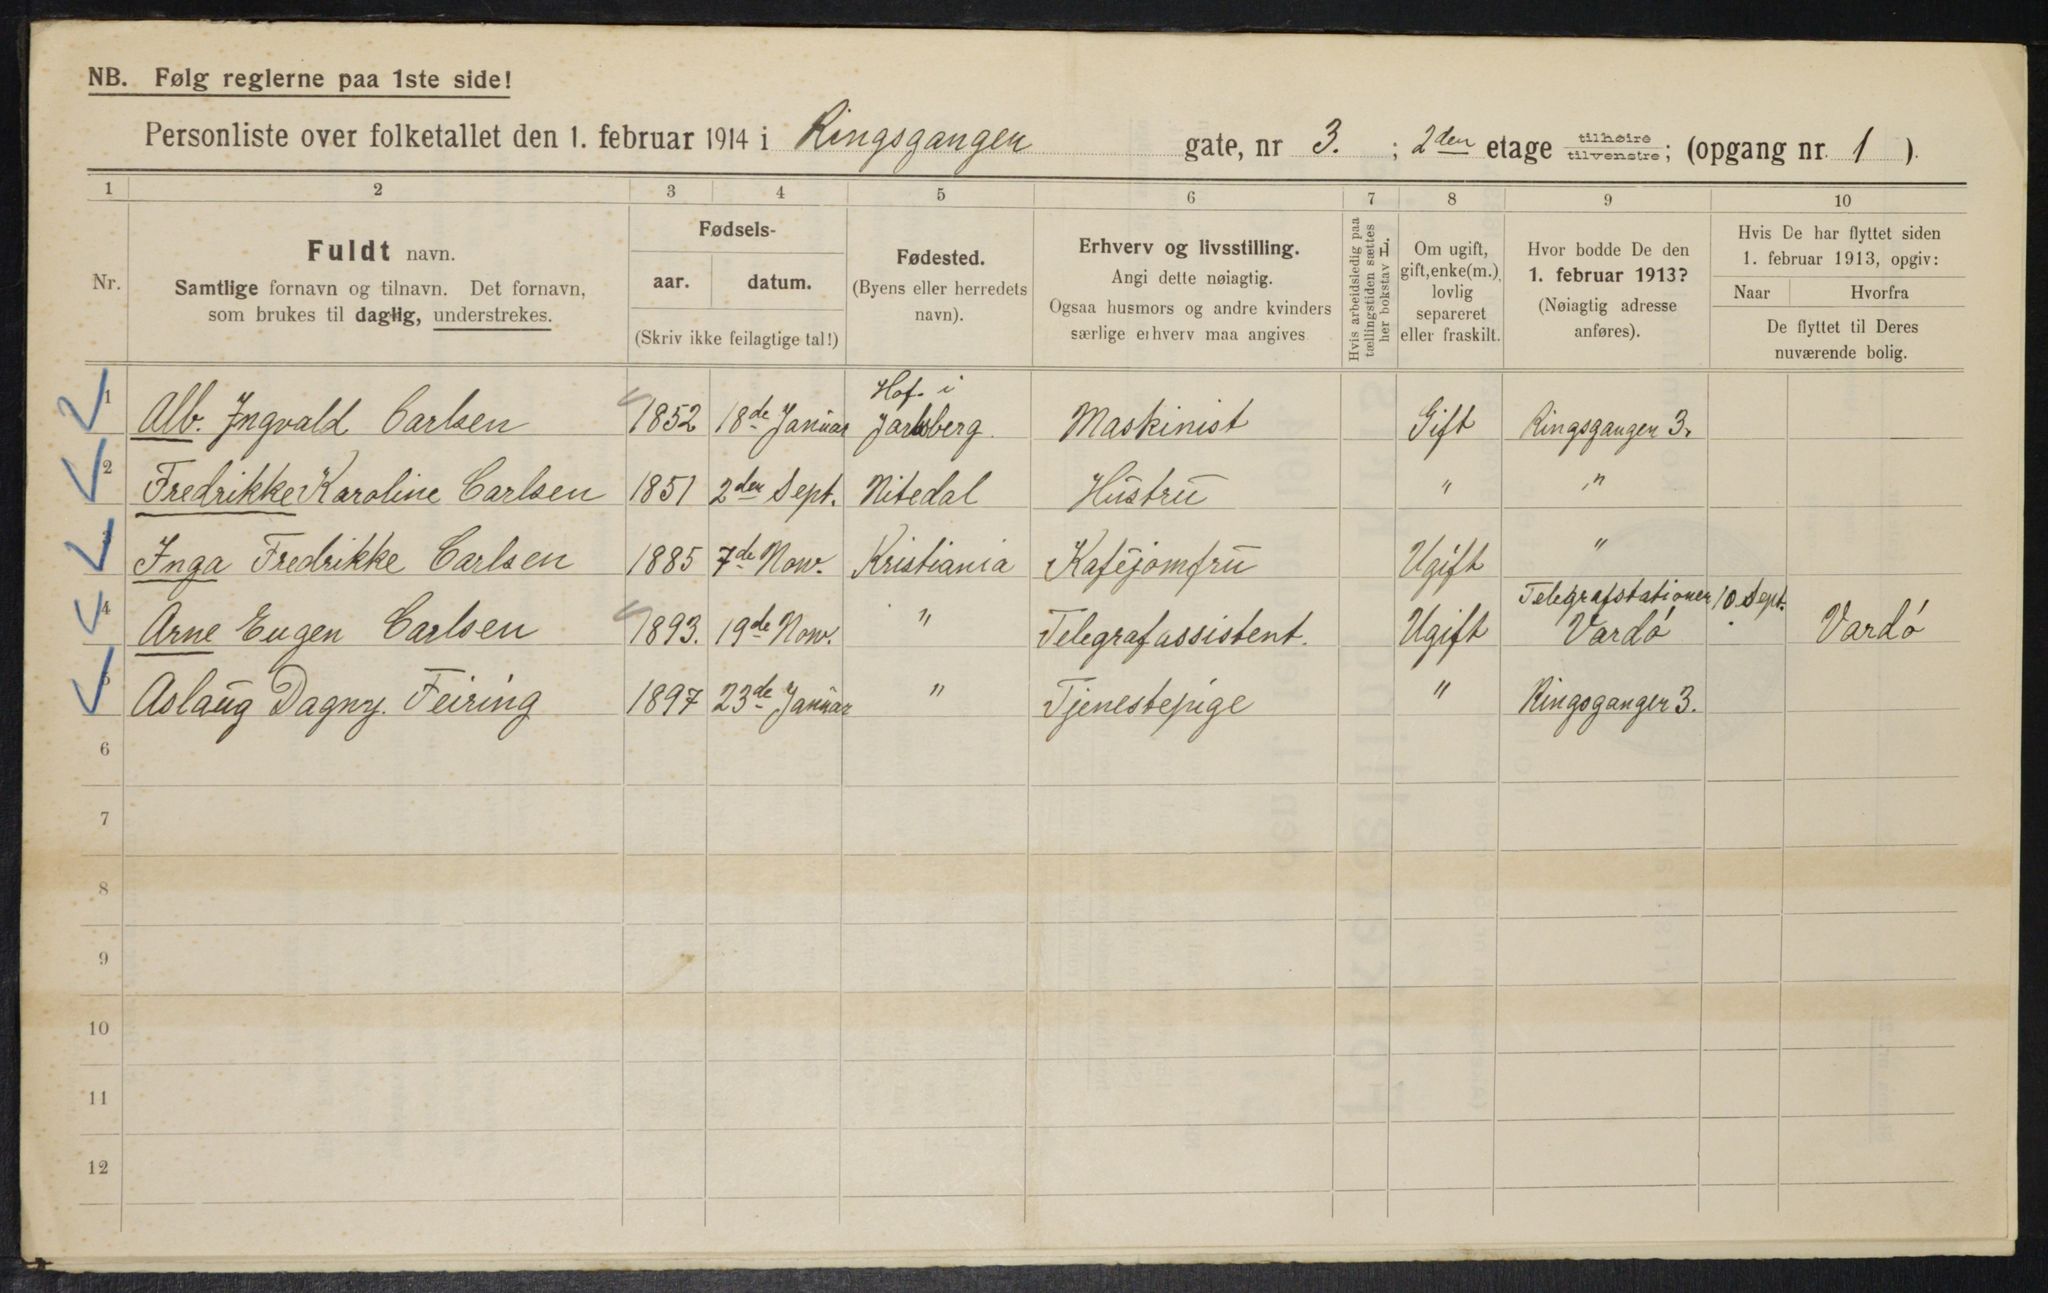 NB. Følg reglerne paa 1ste side!
Personliste over folketallet den 1. februar 1914 i Ringsgangen gate, nr 3. ; 2den etage tilhøire tilvenstre; (opgang nr. 1 ).
1 2 3 4 5 6 7 8 9 10
Nr.
Fuldt navn.
Samtlige fornavn og tilnavn. Det fornavn,
som brukes til daglig, understrekes.
Fødsels-
aar. datum.
(Skriv ikke feilagtige tal!)
Fødested.
(Byens eller herredets
navn).
Erhverv og livsstilling.
Angi dette nøiagtig.
Ogsaa husmors og andre kvinders
særlige erhverv maa angives
Hvis arbeidsledig paa
tællingstiden sættes
her bokstav L.
Om ugift,
gift, enke(m.),
lovlig
separeret
eller fraskilt.
Hvor bodde De den
1. februar 1913?
(Nøiagtig adresse
anføres).
Hvis De har flyttet siden
1. februar 1913, opgiv:
Naar Hvorfra
De flyttet til Deres
nuværende bolig.
1 Alb. Ingvald Carlsen 1852 18de Januar Hof. i Jarlsberg. Maskinist Gift Ringsgangen 3.
2 Fredrikke Karoline Carlsen 1851 2den Sept. Nitedal Hustru " "
3 Inga Fredrikke Carlsen 1885 7de Nov. Kristiania Kaféjomfru Ugift "
4 Arne Eugen Carlsen 1893. 19de Nov. " Telegrafassistent. Ugift Telegrafstationen Vardó 10 Sept. Vardó
5 Aslaug Dagny. Feiring 1897 23de Januar " Tjenestepige " Ringsgangen 3.
6
7
8
9
10
11
12